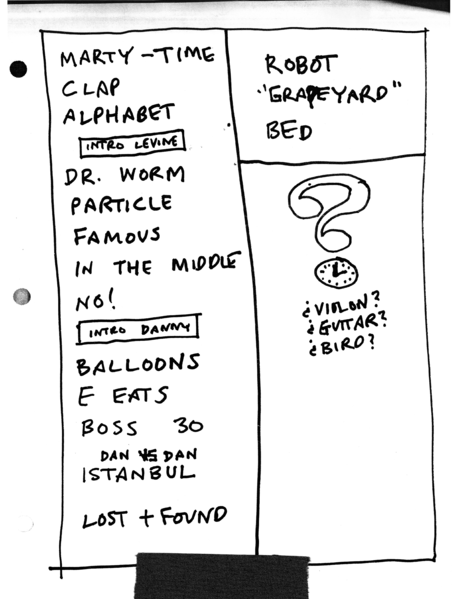 MARTY-TIME
CLAP
ALPHABET
INTRO LEVINE
DR. WORM
PARTICLE
FAMOUS
IN THE MIDDLE
NO!
INTRO DANNY
BALLOONS
E EATS
BOSS 30
DAN VS DAN
ISTANBUL
LOST + FOUND
ROBOT
"GRAPEYARD"
BED
?
¿VIOLON?
¿GUITAR?
¿BIRD?